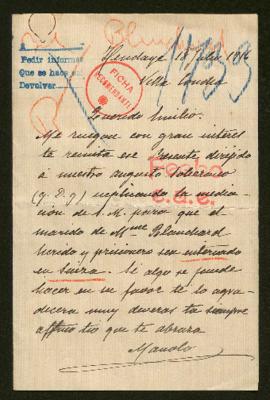 Mme Blanchard
A
Pedir informes
Que se haga
Devolver
Hendaya 18 Julio 1916
Villa Concha
FICHA
Querido Emilio:
Me ruegan con gran interés
te remita ese presente dirigido
à nuestro augusto Soberano
(q. D. g) suplicando la media-
ción de S. M. para que el
marido de Mme Blanchard
herido y prisionero sea internado
en Suiza. Si algo se puede
hacer en su favor te lo agra-
decerá muy deveras tu siempre
affmo tio que te abraza
Manolo